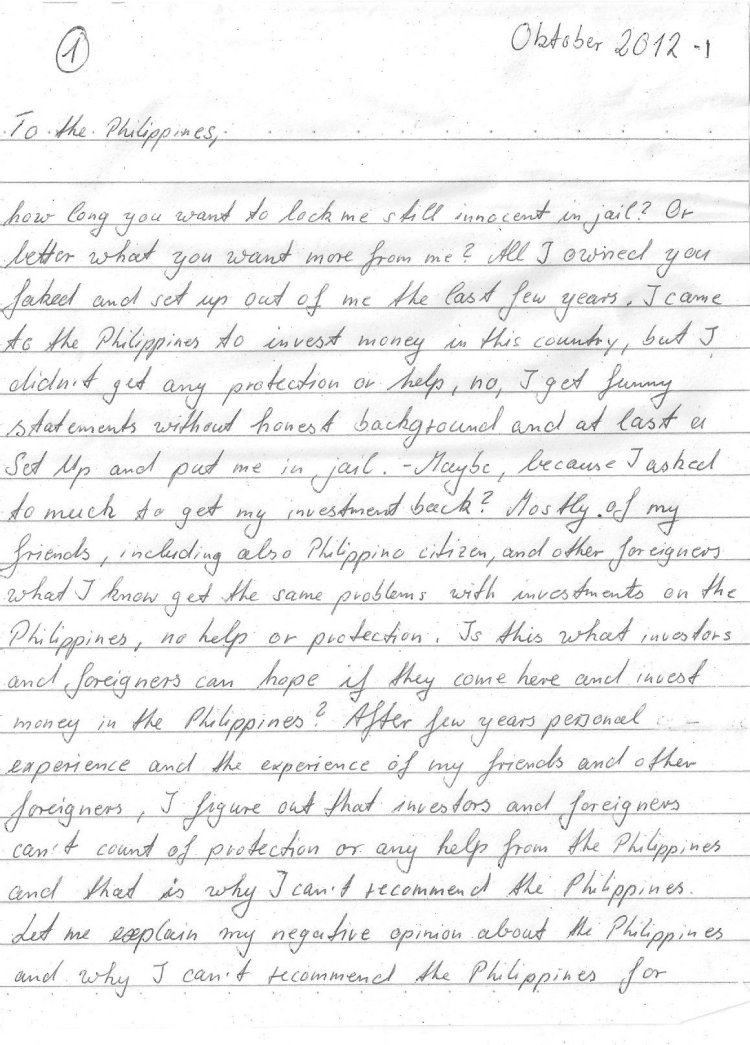 1
Oktober 2012 -1
To the Philippines,
how long you want to lock me still innocent in jail? Or
better what you want more from me? All I owned you
faked and set up out of me the last few years. I came
to the Philippines to invest money in this country, but I
didn't get any protection or help, no, I get funny
statements without honest background and at last a
Set Up and put me in jail. - Maybe, because I asked
to much to get my investment back? Mostly of my
friends, including also Philippino citizen, and other foreigners
what I know get the same problems with investments on the
Philippines, no help or protection. Is this what investors
and foreigners can hope if they come here and invest
money in the Philippines? After few years personal
experience and the experience of my friends and other
foreigners, I figure out that investors and foreigners
can't count of protection or any help from the Philippines
and that is why I can't recommend the Philippines.
Let me explain my negative opinion about the Philippines
and why I can't recommend the Philippines for